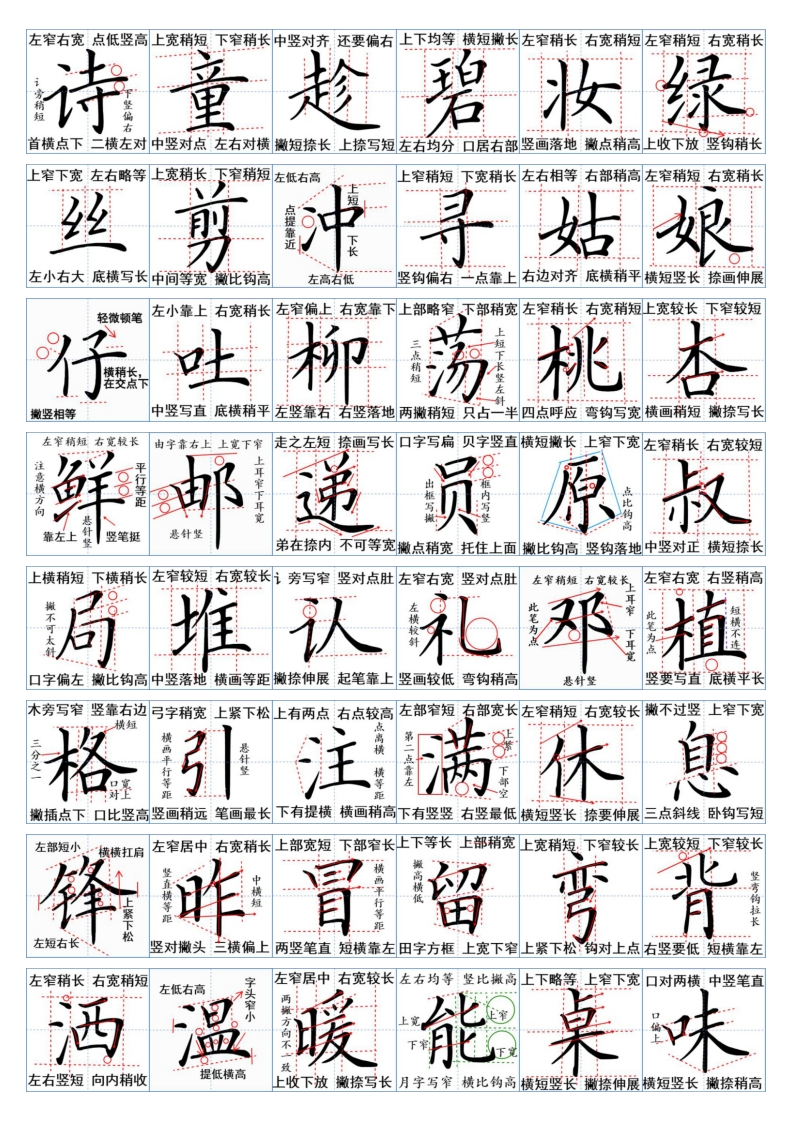 左窄右宽 点低竖高
诗
讠旁稍短
下竖偏右
首横点下 二横左对
上宽稍短 下窄稍长
童
中竖对点 左右对横
中竖对齐 还要偏右
趁
撇短捺长 上捺写短
上下均等 横短撇长
碧
左右均分 口居右部
左窄稍长 右宽稍短
妆
竖画落地 撇点稍高
左窄稍短 右宽稍长
绿
上收下放 竖钩稍长
上窄下宽 左右略等
丝
左小右大 底横写长
上宽稍长 下窄稍短
剪
中间等宽 撇比钩高
左低右高
冲
点提靠近
上短
下长
左高右低
上窄稍短 下宽稍长
寻
竖钩偏右 一点靠上
左右相等 右部稍高
姑
右边对齐 底横稍平
左窄稍短 右宽稍长
娘
横短竖长 捺画伸展
轻微顿笔
仔
横稍长,
在交点下
撇竖相等
左小靠上 右宽稍长
吐
中竖写直 底横稍平
左窄偏上 右宽靠下
柳
左竖靠右 右竖落地
上部略窄 下部稍宽
荡
三点稍短
上短下长竖左斜
两撇稍短 只占一半
左窄稍长 右宽稍短
桃
四点呼应 弯钩写宽
上宽较长 下窄较短
杏
横画稍短 撇捺写长
左窄稍短 右宽较长
鲜
注意横方向
平行等距
靠左上
悬针竖
竖笔挺
由字靠右上 上宽下窄
邮
上耳窄下耳宽
悬针竖
走之左短 捺画写长
递
弟在捺内 不可等宽
口字写扁 贝字竖直
员
出框写撇
框内写竖
撇点稍宽 托住上面
横短撇长 上窄下宽
原
点比钩高
撇比钩高 竖钩落地
左窄稍长 右宽较短
叔
中竖对正 横短捺长
上横稍短 下横稍长
局
撇不可太斜
口字偏左 撇比钩高
左窄较短 右宽较长
堆
中竖落地 横画等距
讠旁写窄 竖对点肚
认
撇捺伸展 起笔靠上
左窄右宽 竖对点肚
礼
左横较斜
竖画较低 弯钩稍高
左窄稍短 右宽较长
邓
此笔为点
上耳窄
下耳宽
悬针竖
左窄右宽 右竖稍高
植
此笔为点
短横不连
竖要写直 底横平长
木旁写窄 竖靠右边
格
横短
三分之一
口宽对上
撇插点下 口比竖高
弓字稍宽 上紧下松
引
横画平行等距
悬针竖
竖画稍远 笔画最长
上有两点 右点较高
注
点离横
横等距
下有提横 横画稍高
左部窄短 右部宽长
满
第二点靠左
上紧
下部空
下有竖竖 右竖最低
左窄稍短 右宽稍长
休
横短竖长 捺要伸展
撇不过竖 上窄下宽
息
三点斜线 卧钩写短
左部短小
横横扛肩
锋
上紧下松
左短右长
左窄居中 右宽稍长
昨
竖直横等距
中横短
竖对撇头 三横偏上
上部宽短 下部窄长
冒
横画平行等距
两竖笔直 短横靠左
上下等长 上部稍宽
留
撇高横低
田字方框 上宽下窄
上宽稍短 下窄稍长
弯
上紧下松 钩对上点
上宽较短 下窄较长
背
竖弯钩拉长
右竖要低 短横靠左
左窄稍长 右宽稍短
洒
左右竖短 向内稍收
左低右高
字头窄小
温
提低横高
左窄居中 右宽较长
暖
两撇方向不一致
上收下放 撇捺写长
左右均等 竖比撇高
能
上宽
下窄
上窄
下宽
月字写窄 横比钩高
上下略等 上窄下宽
桌
横短竖长 撇捺伸展
口对两横 中竖笔直
味
口偏上
横短竖长 撇捺稍高